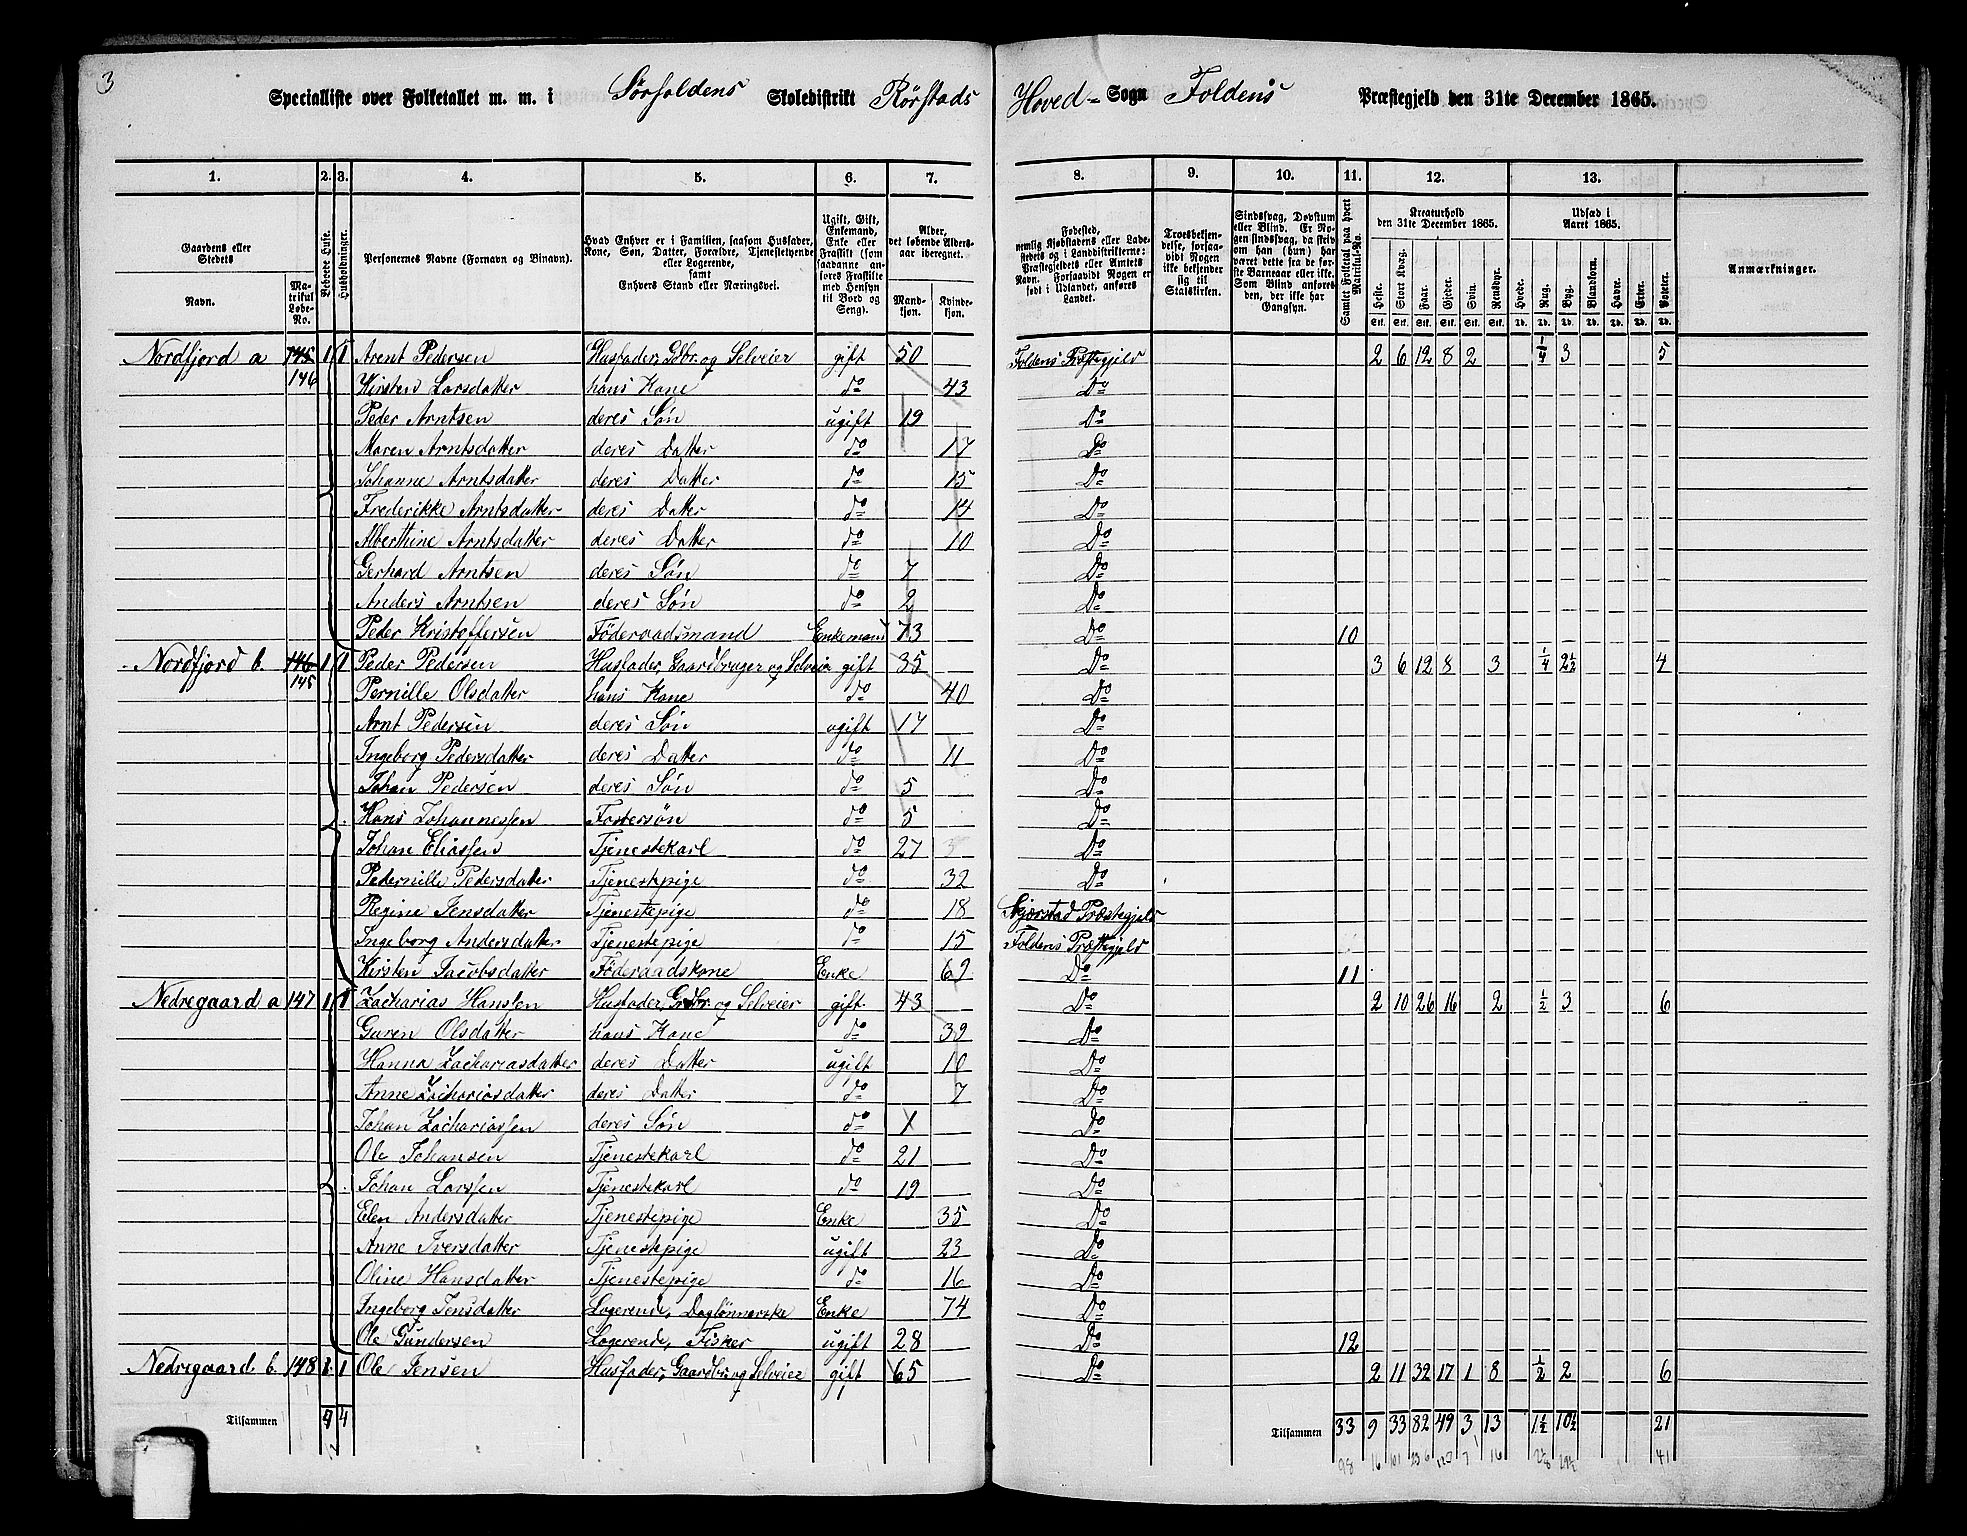 3
Specialliste over Folketallet m. m. i Sørfoldens Skoledistrikt Rörstads Hoved- Sogn Foldens Præstegjeld den 31te December 1865.
1. 2. 3. 4. 5. 6. 7. 8. 9. 10. 11. 12. 13.
Gaardens eller Stedets
Navn. Matrikul Løbe-No.
Beboede Huse.
Husholdninger.
Personernes Navne (Fornavn og Binavn).
Hvad Enhver er i Familien, saasom Husfader, Kone, Søn, Datter, Forældre, Tjenestetyende eller Logerende, samt Enhvers Stand eller Næringsvei.
Ugift, Gift, Enkemand, Enke eller Fraskilt (som saadanne anføres Fraskilte med Hensyn til Bord og Seng).
Alder, det løbende Alders-aar iberegnet.
Mandkjøn. Kvindekjøn.
Fødested, nemlig Kjøbstadens eller Ladestedets og i Landdistrikterne: Præstegjeldets eller Amtets Navn. Forsaavidt Nogen er født i Udlandet, anføres Landet.
Troesbekjendelse, forsaavidt Nogen ikke bekjender sig til Statskirken.
Sindssvag, Døvstum eller Blind. Er Nogen sindssvag, da skriv om han (hun) har været dette fra de første Barneaar eller ikke. Som Blind anføres den, der ikke har Gangsyn.
Samlet Folketal paa hvert Matrikul-No.
Kreaturhold den 31te December 1865.
Heste. Stort Kvæg. Faar. Gjeder. Svin. Rensdyr.
Udsæd i Aaret 1865.
Hvede. Rug. Byg. Blandkorn. Havre. Erter. Poteter.
Anmærkninger.
Stk. Stk. Stk. Stk. Stk. Stk. Td. Td. Td. Td. Td. Td. Td.
Nordfjord a 145 146 1 1 Arent Pedersen Husfader, Gdbr. og Selveier gift 50 Foldens Præstegjeld 2 6 12 8 2 1/4 3 5
Kirsten Larsdatter hans Kone do 43 Do
Peder Arntsen deres Søn ugift 19 Do
Maren Arntsdatter deres Datter do 17 Do
Johanne Arntsdatter deres Datter do 15 Do
Frederikke Arntsdatter deres Datter do 14 Do
Alberthine Arntsdatter deres Datter do 10 Do
Gerhard Arntsen deres Søn do 7 Do
Anders Arntsen deres Søn do 2 Do
Peder Kristoffersen Föderaadsmand Enkemand 73 Do 10
Nordfjord b. 146 145 1 1 Peder Pedersen Husfader, Gaardbruger og Selveier gift 35 Do 3 6 12 8 3 1/4 2 1/2 4
Pernille Olsdatter hans Kone do 40 Do
Arnt Pedersen deres Søn ugift 17 Do
Ingeborg Pedersdatter deres Datter do 11 Do
Johan Pedersen deres Søn do 5 Do
Hans Johannessen Fostersøn do 5 Do
Johan Eliassen Tjenestekarl do 27 Do
Pedernille Pedersdatter Tjenestepige do 32 Do
Regine Jensdatter Tjenestepige do 18 Skjerstad Præstegjeld
Ingeborg Andersdatter Tjenestepige do 15 Foldens Præstegjeld
Kirsten Jacobsdatter Föderaadskone Enke 69 Do 11
Nedregaard a 147 1 1 Zacharias Hanssen Husfader, Gdbr. og Selveier gift 43 Do 2 10 26 16 2 1/2 3 6
Guren Olsdatter hans Kone do 39 Do
Hanna Zachariasdatter deres Datter ugift 10 Do
Anne Zachariasdatter deres Datter do 7 Do
Johan Zachariassen deres Søn do 1 Do
Ole Johansen Tjenestekarl do 21 Do
Johan Larssen Tjenestekarl do 19 Do
Elen Andersdatter Tjenestepige Enke 35 Do
Anne Iversdatter Tjenestepige ugift 23 Do
Oline Hansdatter Tjenestepige do 16 Do
Ingeborg Jensdatter Logerende, Daglønnerske Enke 74 Do
Ole Gundersen Logerende, Fisker ugift 28 Do 12
Nedregaard b. 148 1 1 Ole Jensen Husfader, Gaardbr. og Selveier gift 65 Do 2 11 32 17 1 8 1/2 2 6
Tilsammen 4 4 Tilsammen 33 9 33 82 49 3 13 1 1/2 10 1/2 21
98 16 101 236 7 16 41